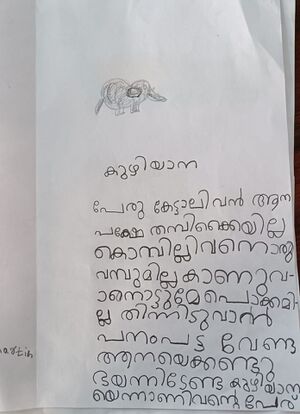 കുഴിയാന
പേരു കേട്ടാലിവൻ ആന
പക്ഷേ തമ്പിക്കൈയില്ല
കൊമ്പില്ലിവന്നൊരു
വമ്പുമില്ല കാണുവ-
ാനൊട്ടുമേ പൊക്കമി
ല്ല തിന്നിടുവാൻ
പനംപട്ട വേണ്ട
ആനയെക്കണ്ടു
ഭയന്നിടേണ്ട കുഴിയാന
യെന്നാണിവന്റെ പേര്